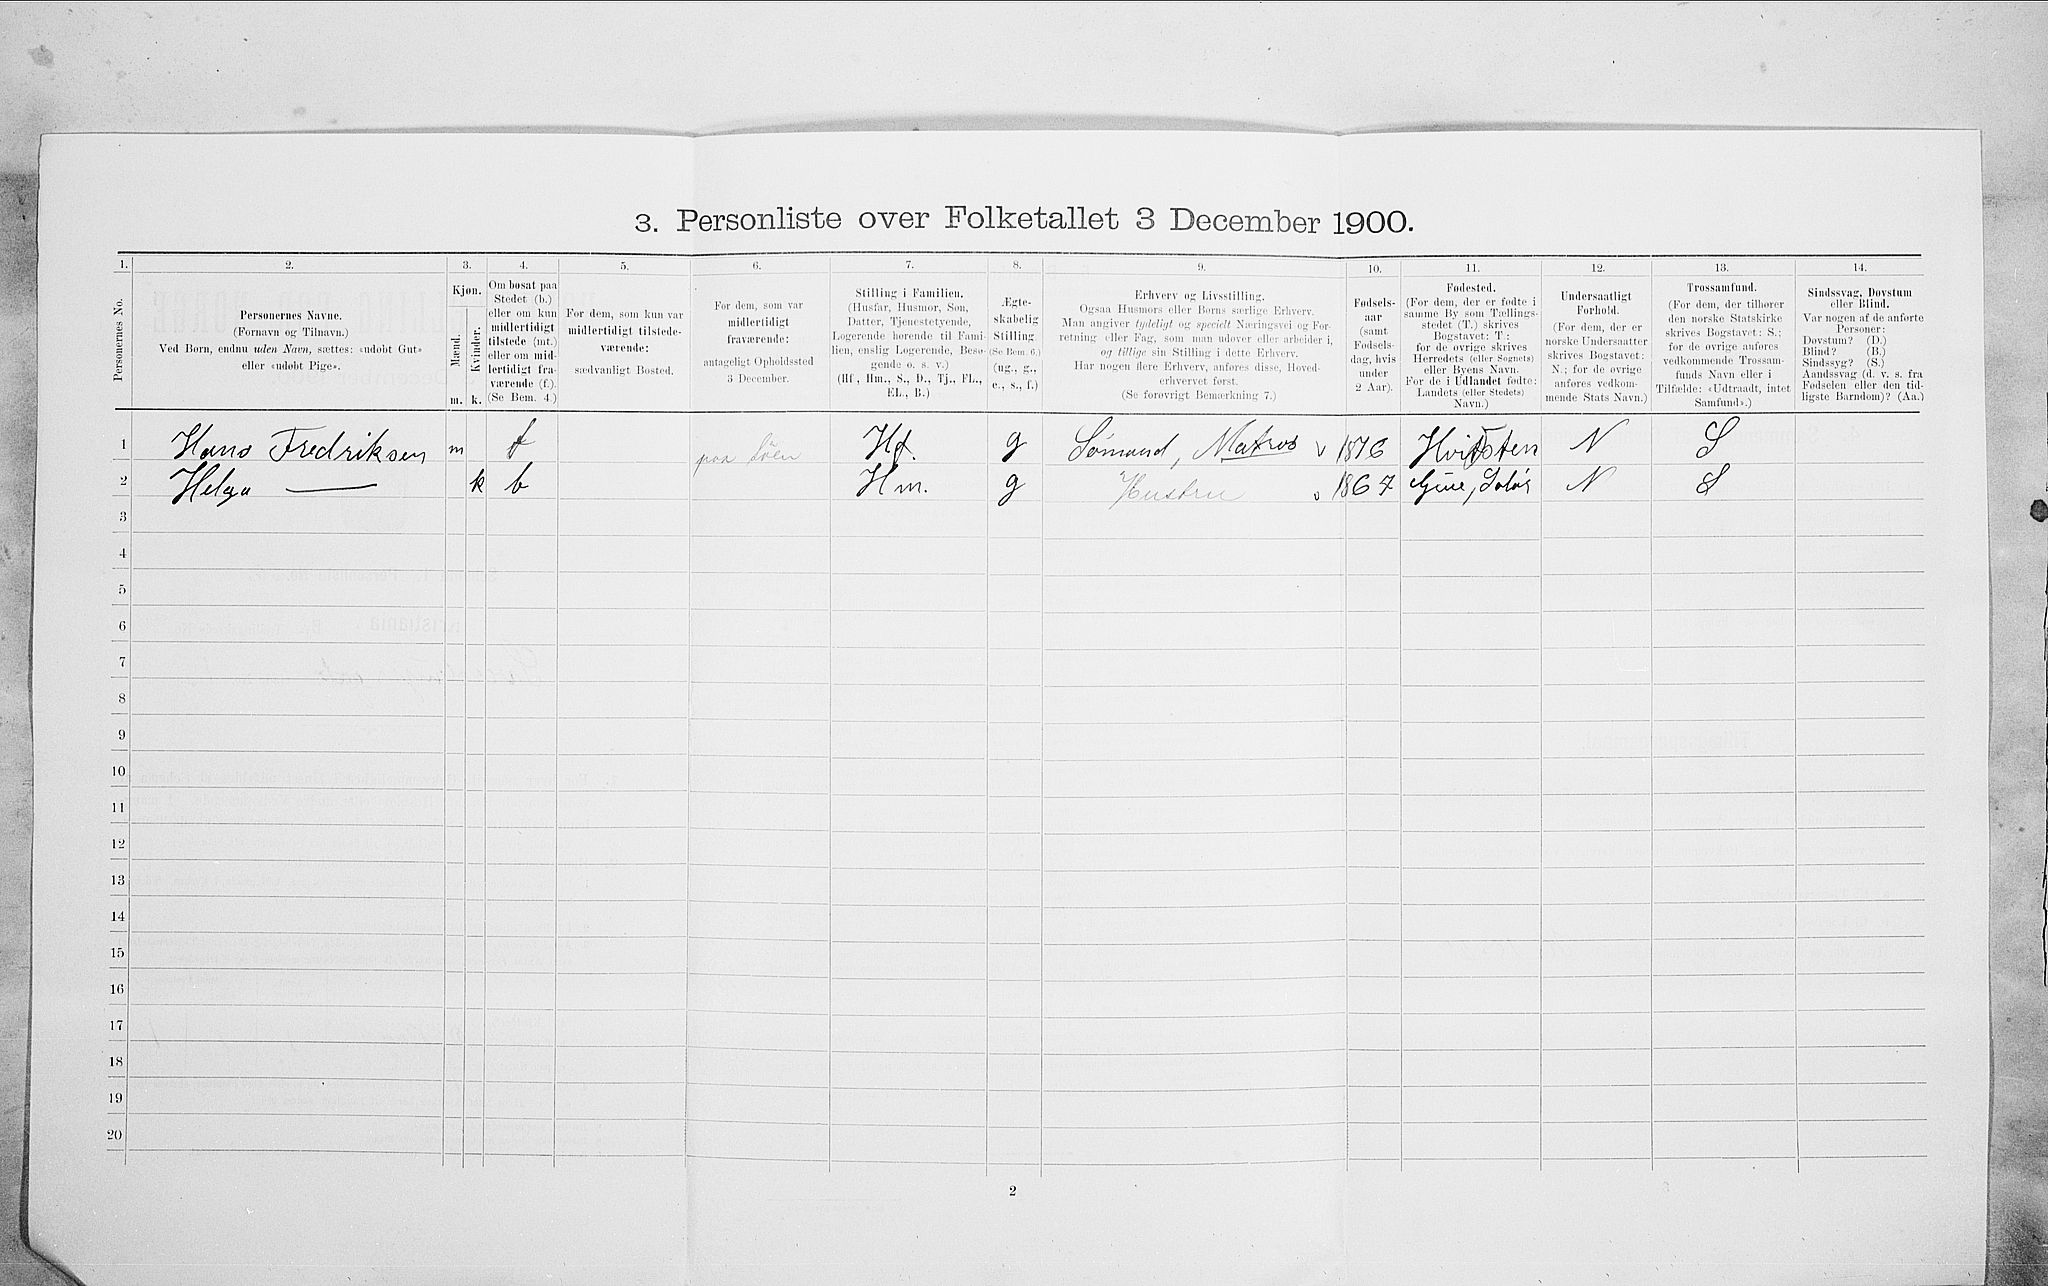 3. Personliste over Folketallet 3 December 1900.
1. 2. 3. 4. 5. 6. 7. 8. 9. 10. 11. 12. 13. 14.
Personernes No.
Personernes Navne.
(Fornavn og Tilnavn.)
Ved Børn, endnu uden Navn, sættes: «udøbt Gut»
eller «udøbt Pige».
Kjøn.
Mænd.
Kvinder.
m. k.
Om bosat paa
Stedet (b.)
eller om kun
midlertidigt
tilstede (mt.)
eller om mid-
lertidigt fra-
værende (f.).
(Se Bem. 4.)
For dem, som kun var
midlertidigt tilstede-
værende:
sædvanligt Bosted.
For dem, som var
midlertidigt
fraværende:
antageligt Opholdssted
3 December.
Stilling i Familien.
(Husfar, Husmor, Søn,
Datter, Tjenestetyende,
Logerende hørende til Fami-
lien, enslig Logerende, Besø-
gende o. s. v.)
(Hf., Hm., S., D., Tj., FL.,
EL., B.)
Ægte-
skabelig
Stilling
(Se Bem. 6.)
(ug., g.,
e., s., f.)
Erhverv og Livsstilling.
Ogsaa Husmors eller Børns særlige Erhverv.
Man angiver tydeligt og specielt Næringsvei og For-
retning eller Fag, som man udøver eller arbeider i,
og tillige sin Stilling i dette Erhverv.
Har nogen flere Erhverv, anføres disse, Hoved-
erhvervet først.
(Se forøvrigt Bemærkning 7.)
Fødsels-
aar
(samt
Fødsels-
dag, hvis
under
2 Aar).
Fødested.
(For dem, der er fødte i
samme By som Tællings-
stedet (T.) skrives
Bogstavet: T.;
for de øvrige skrives
Herredets (eller Sognets)
eller Byens Navn.
For de i Udlandet fødte:
Landets (eller Stedets)
Navn.)
Undersaatligt
Forhold.
(For dem, der er
norske Undersaatter
skrives Bogstavet:
N.; for de øvrige
anføres vedkom-
mende Stats Navn.)
Trossamfund.
(For dem, der tilhører
den norske Statskirke
skrives Bogstavet: S.;
for de øvrige anføres
vedkommende Trossam-
funds Navn eller i
Tilfælde: «Udtraadt, intet
Samfund».)
Sindssvag, Døvstum
eller Blind.
Var nogen af de anførte
Personer:
Døvstum? (D.)
Blind? (B.)
Sindssyg? (S.)
Aandssvag (d. v. s. fra
Fødselen eller den tid-
ligste Barndom)? (Aa.)
1 Hans Fredriksen m f paa Söen Hf. g Sømand, Matros v 1876 Hvitsten N S
2 Helga — k b Hm. g Hustru v 1867 Solør N S
3
4
5
6
7
8
9
10
11
12
13
14
15
16
17
18
19
20
2